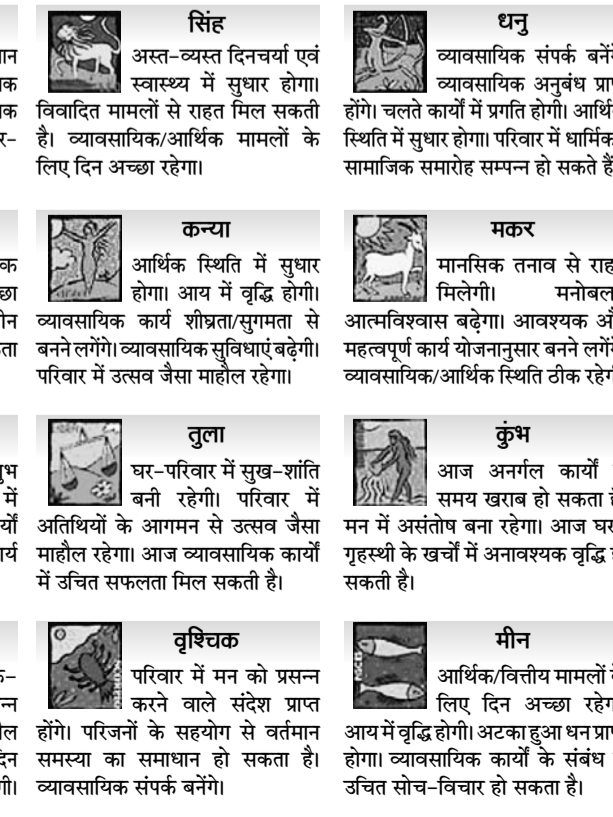 सिंह
अस्त-व्यस्त दिनचर्या एवं
स्वास्थ्य में सुधार होगा।
विवादित मामलों से राहत मिल सकती
है। व्यावसायिक/आर्थिक मामलों के
लिए दिन अच्छा रहेगा।
कन्या
आर्थिक स्थिति में सुधार
होगा। आय में वृद्धि होगी।
व्यावसायिक कार्य शीघ्रता/सुगमता से
बनने लगेंगे। व्यावसायिक सुविधाएं बढ़ेगी।
परिवार में उत्सव जैसा माहौल रहेगा।
तुला
घर-परिवार में सुख-शांति
बनी रहेगी। परिवार में
अतिथियों के आगमन से उत्सव जैसा
माहौल रहेगा। आज व्यावसायिक कार्यों
में उचित सफलता मिल सकती है।
वृश्चिक
परिवार में मन को प्रसन्न
करने वाले संदेश प्राप्त
होंगे। परिजनों के सहयोग से वर्तमान
समस्या का समाधान हो सकता है।
व्यावसायिक संपर्क बनेंगे।
धनु
व्यावसायिक संपर्क बनेंगे
व्यावसायिक अनुबंध प्राप
होंगे। चलते कार्यों में प्रगति होगी। आर्थि
स्थिति में सुधार होगा। परिवार में धार्मिक
सामाजिक समारोह सम्पन्न हो सकते हैं
मकर
मानसिक तनाव से राह
मिलेगी। मनोबल
आत्मविश्वास बढ़ेगा। आवश्यक औ
महत्वपूर्ण कार्य योजनानुसार बनने लगेंगे
व्यावसायिक/आर्थिक स्थिति ठीक रहेगी
कुंभ
आज अनर्गल कार्यों
समय खराब हो सकता है
मन में असंतोष बना रहेगा। आज घर
गृहस्थी के खर्चों में अनावश्यक वृद्धि ह
सकती है।
मीन
आर्थिक/वित्तीय मामलों के
लिए दिन अच्छा रहेग
आय में वृद्धि होगी। अटका हुआ धन प्राप
होगा। व्यावसायिक कार्यों के संबंध
उचित सोच-विचार हो सकता है।